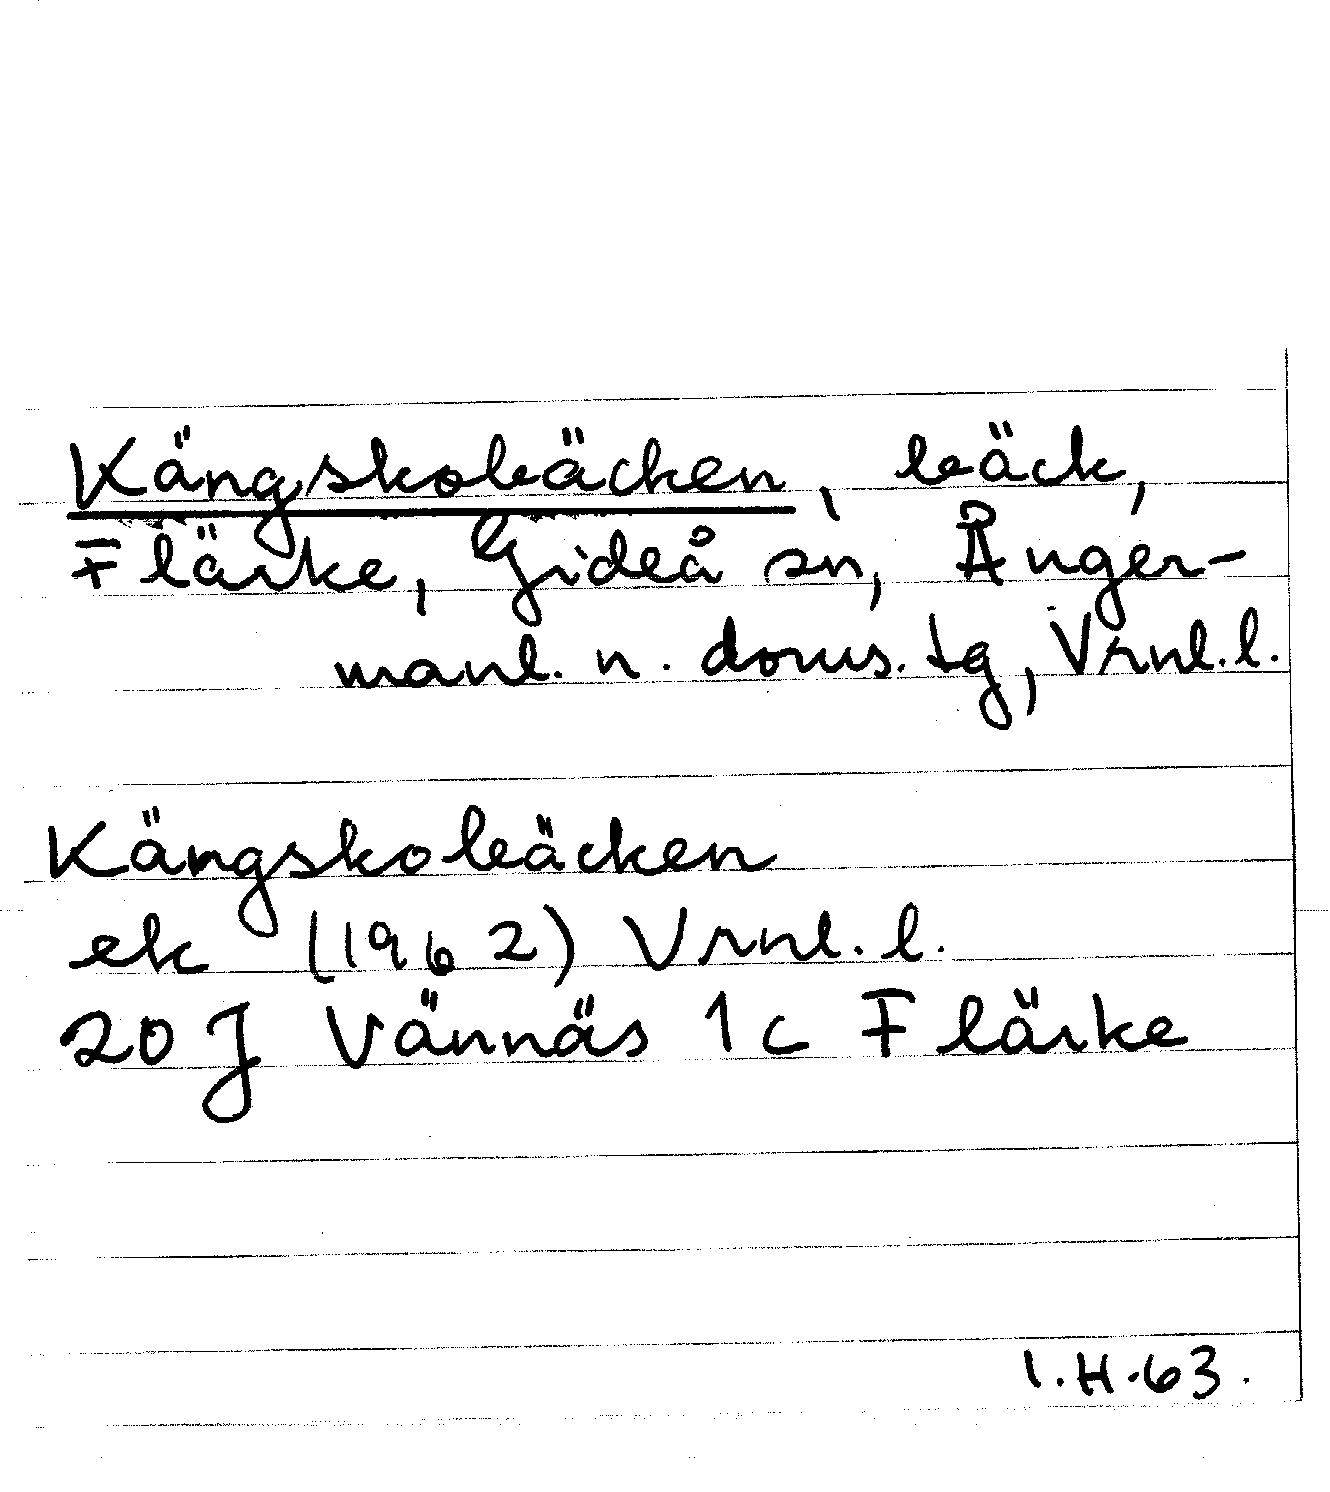 Kängskobäcken, bäck,
Flärke, Gideå sn, Ånger-
manl. n. doms. tg, Vrnl.l.
Kängskobäcken
ek (1962) Vrnl.l.
20J Vännäs 1c Flärke
I.H.63.